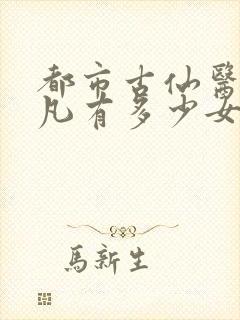 都市古仙醫
凡有多少女
馬新生